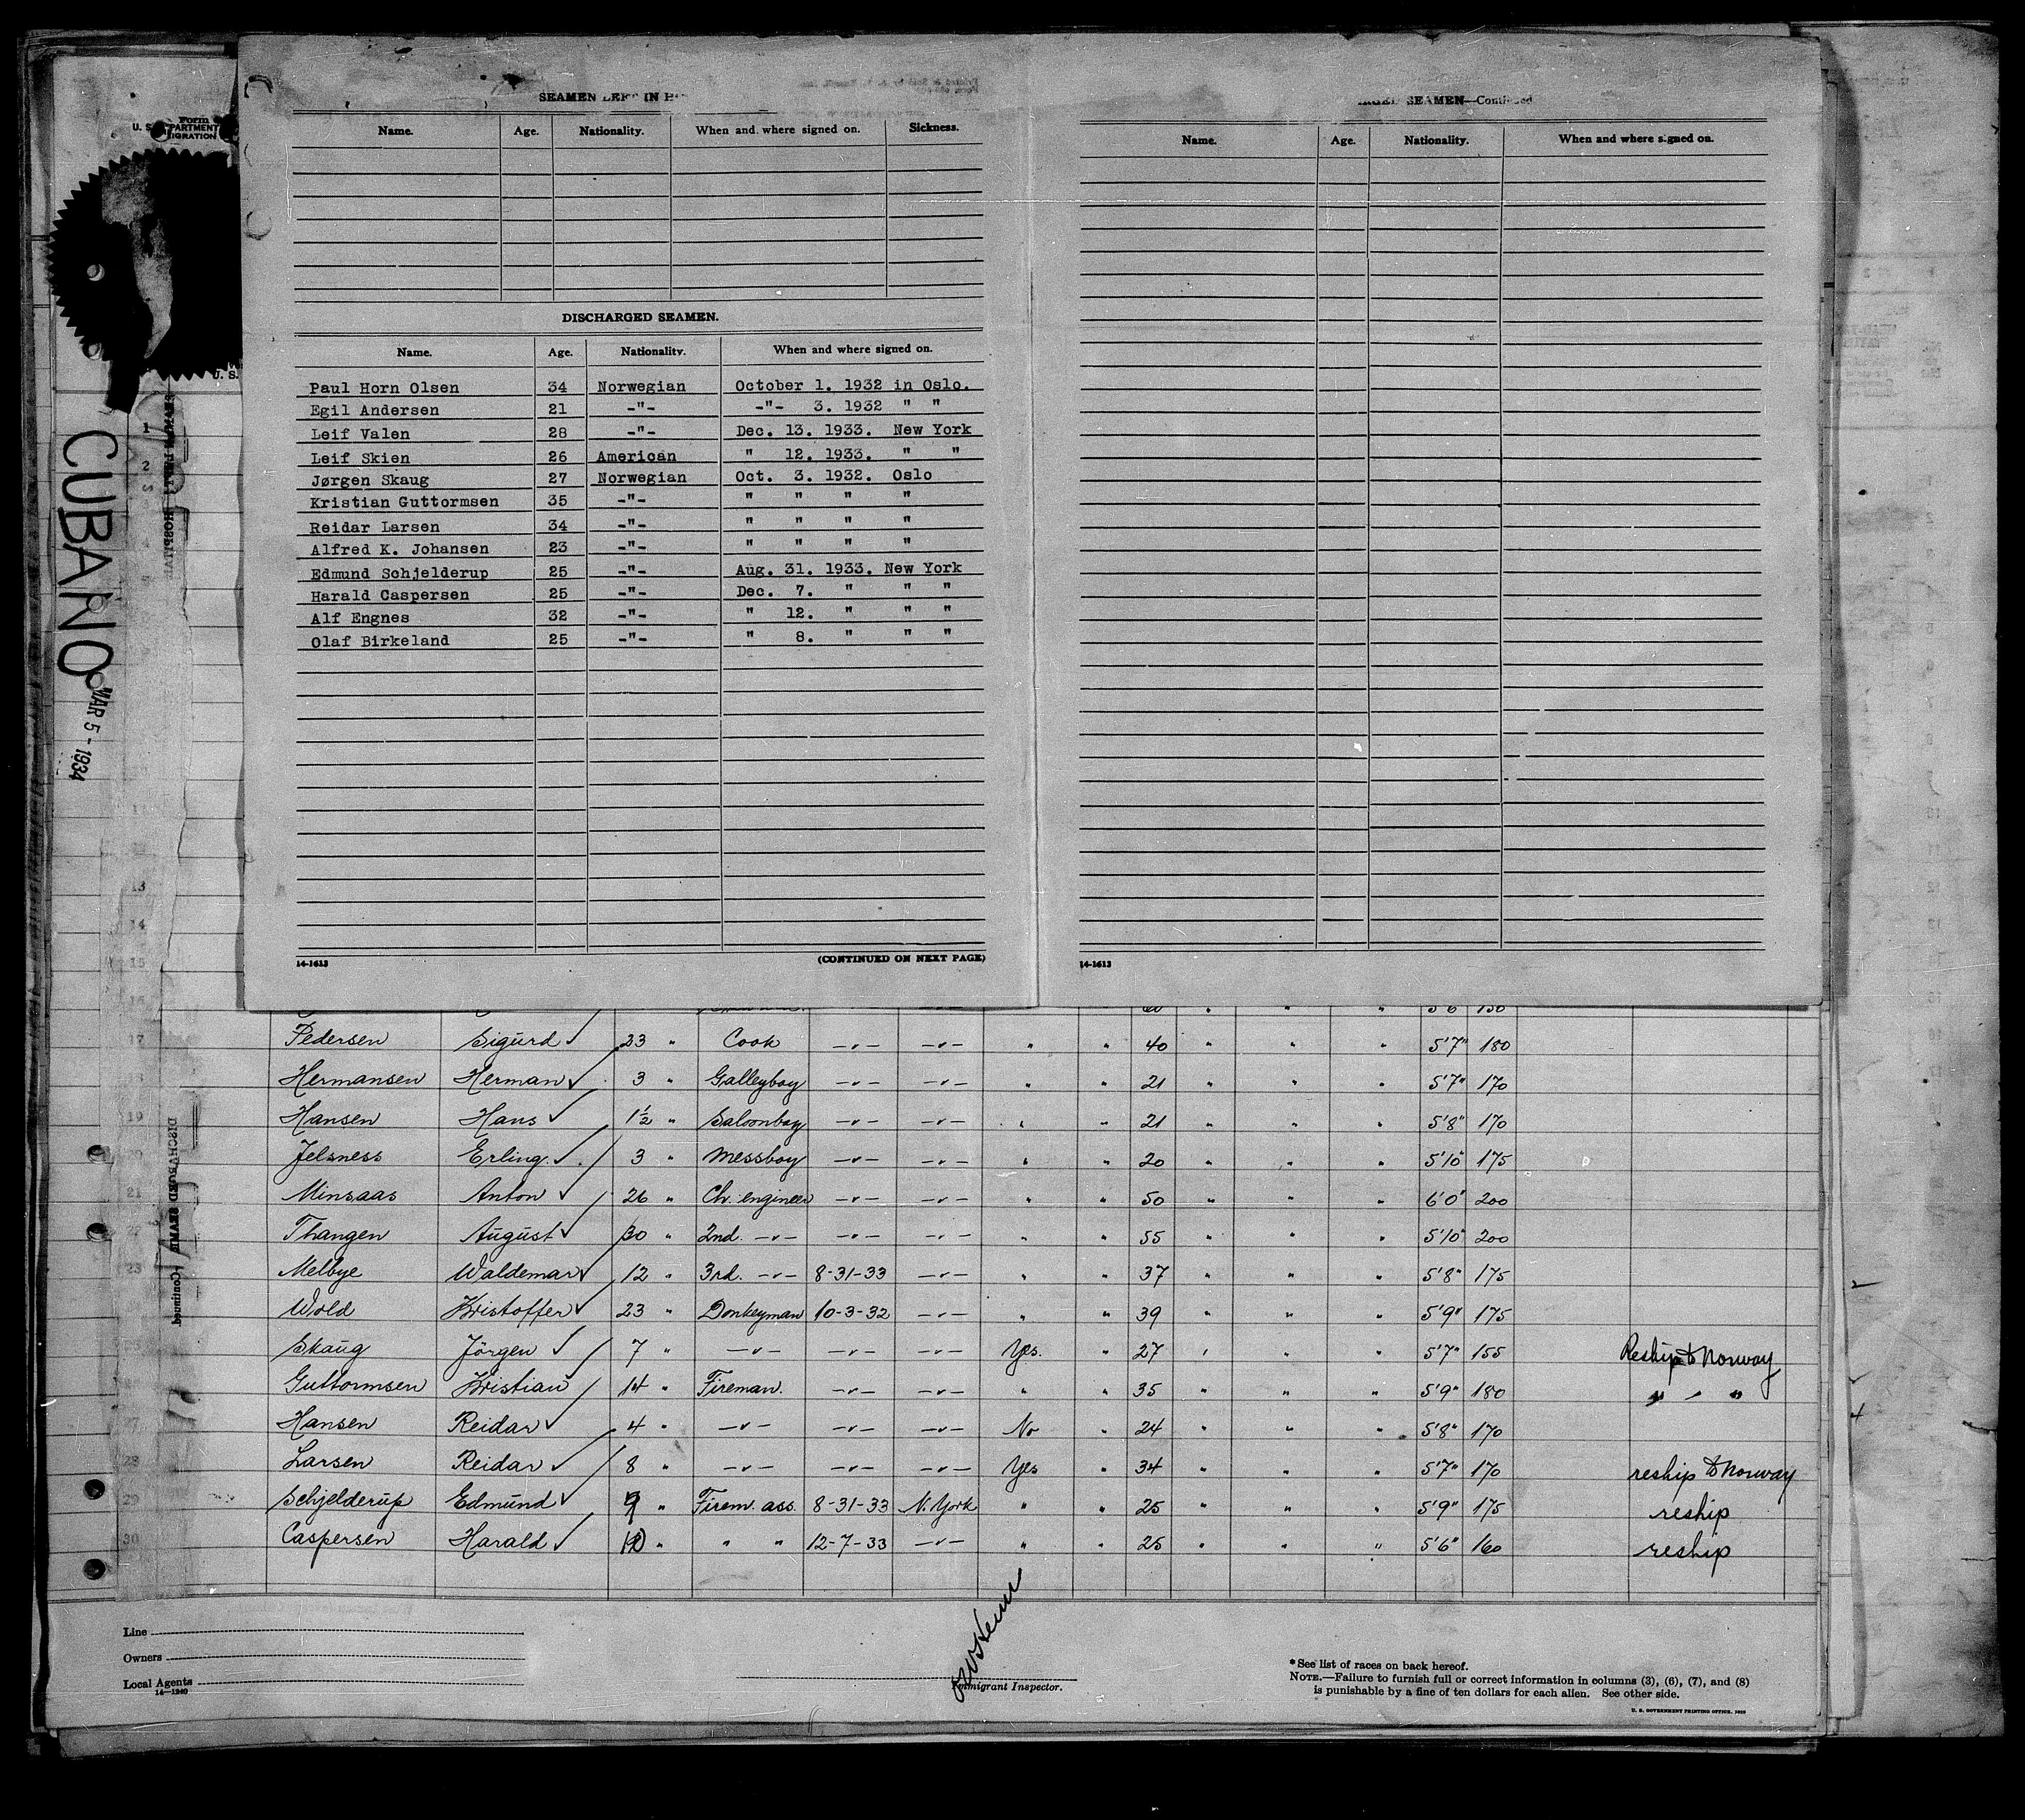 SEAMEN LEFT IN
Name. Age. Nationality. When and where signed on. Sickness.
DISCHARGED SEAMEN.
Name. Age. Nationality. When and where signed on.
Paul Horn Olsen 34 Norwegian October 1. 1932 in Oslo.
Egil Andersen 21 -"- -"- 3. 1932 " "
Leif Valen 28 -"- Dec. 13. 1933. New York
Leif Skien 26 American " 12. 1933. " "
Jørgen Skaug 27 Norwegian Oct. 3. 1932. Oslo
Kristian Guttormsen 35 -"- " " " "
Reidar Larsen 34 -"- " " " "
Alfred K. Johansen 23 -"- " " " "
Edmund Schjelderup 25 -"- Aug. 31. 1933. New York
Harald Caspersen 25 -"- Dec. 7. " " "
Alf Engnes 32 -"- " 12. " " "
Olaf Birkeland 25 -"- " 8. " " "
14-1613 (CONTINUED ON NEXT PAGE)
SEAMEN—Continued
Name. Age. Nationality. When and where signed on.
14-1613
Form
U. S.
CUBANO
MAR 5 - 1934
1
2
13
14
15
16
5'6 150
17 Pedersen Sigurd ✓ 23 " Cook -"- -"- " " 40 " " " 5'7" 180
18 Hermansen Herman ✓ 3 " Galleyboy -"- -"- " " 21 " " " 5'7" 170
19 Hansen Hans ✓ 1½ " Saloonboy -"- -"- " " 21 " " " 5'8" 170
20 Jelsness Erling ✓ 3 " Messboy -"- -"- " " 20 " " " 5'10" 175
21 Minsaas Anton ✓ 26 " Ch. engineer -"- -"- " " 50 " " " 6'0" 200
22 Thangen August ✓ 30 " 2nd. -"- -"- -"- " " 55 " " " 5'10" 200
23 Melbye Waldemar ✓ 12 " 3rd. -"- 8-31-33 -"- " " 37 " " " 5'8" 175
Wold Kristoffer ✓ 23 " Donkeyman 10-3-32 -"- " " 39 " " " 5'9" 175
25 Skaug Jörgen ✓ 7 " -"- -"- -"- Yes. " 27 " " " 5'7" 155 Reship to Norway
26 Guttormsen Kristian ✓ 14 " Fireman. -"- -"- " " 35 " " " 5'9" 180 " " "
27 Hansen Reidar ✓ 4 " -"- -"- -"- No " 24 " " " 5'8" 170
28 Larsen Reidar ✓ 8 " -"- -"- -"- Yes " 34 " " " 5'7" 170 reship to Norway
29 Schjelderup Edmund ✓ 9 " Firem. ass. 8-31-33 N. York " " 25 " " " 5'9" 175 reship
30 Caspersen Harald ✓ " " " 12-7-33 -"- " " 25 " " " 5'6" 160 reship
Line
Owners
Local Agents
14—1240
Immigrant Inspector.
*See list of races on back hereof.
NOTE.—Failure to furnish full or correct information in columns (3), (6), (7), and (8)
is punishable by a fine of ten dollars for each alien. See other side.
U. S. GOVERNMENT PRINTING OFFICE.